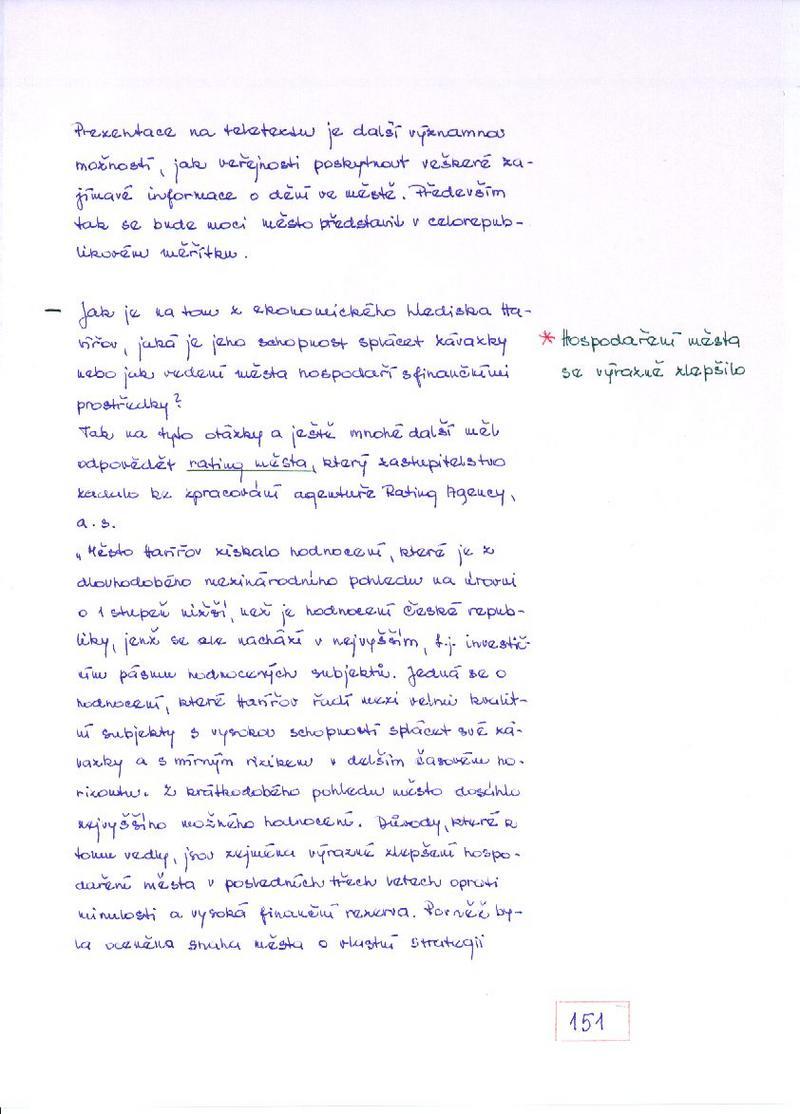 Prezentace na teletextu je další významnou
možností, jak veřejnosti poskytnout veškeré za-
jímavé informace o dění ve městě. Především
tak se bude moci město představit v celorepub-
likovém měřítku.
– Jak je na tom z ekonomického hlediska Ha-
vířov, jaká je jeho schopnost splácet závazky
* Hospodaření města
nebo jak vedení města hospodaří s finančními
se výrazně zlepšilo
prostředky?
Tak na tyto otázky a ještě mnohé další měl
odpovědět rating města, který zastupitelstvo
zadalo ke zpracování agentuře Rating Agency,
a. s.
„Město Havířov získalo hodnocení, které je z
dlouhodobého mezinárodního pohledu na úrovni
o 1 stupeň nižší, než je hodnocení České repub-
liky, jenž se ale nachází v nejvyšším, t.j. investič-
ním pásmu hodnocených subjektů. Jedná se o
hodnocení, které Havířov řadí mezi velmi kvalit-
ní subjekty s vysokou schopností splácet své zá-
vazky a s mírným rizikem v delším časovém ho-
rizontu. Z krátkodobého pohledu město dosáhlo
nejvyššího možného hodnocení. Důvody, které k
tomu vedly, jsou zejména výrazné zlepšení hospo-
daření města v posledních třech letech oproti
minulosti a vysoká finanční rezerva. Rovněž by-
la oceněna snaha města o vlastní strategii
151